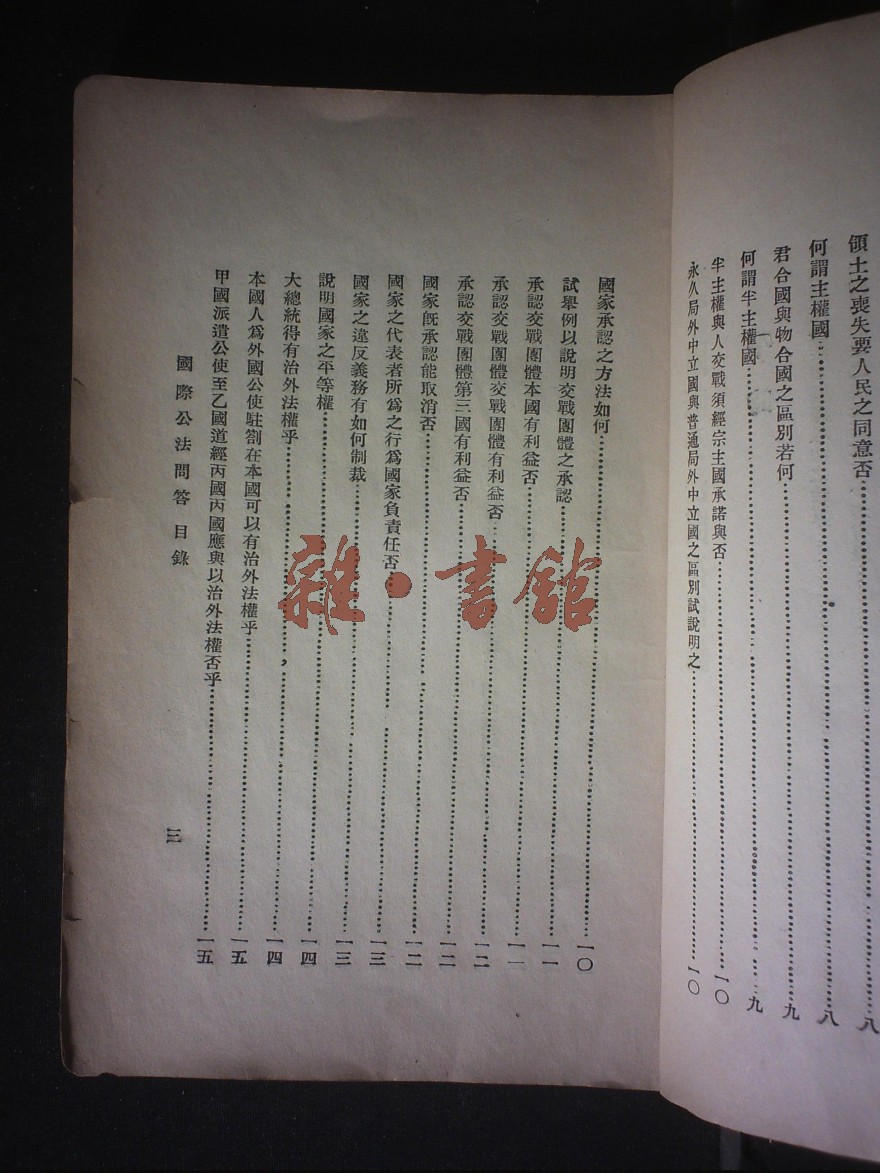 領土之喪失要人民之同意否……八
何謂主權國……八
君合國與物合國之區別若何……九
何謂半主權國……九
半主權與人交戰須經宗主國承諾與否……一〇
永久局外中立國與普通局外中立國之區別試說明之……一〇
國家承認之方法如何……一〇
試舉例以說明交戰團體之承認……一一
承認交戰團體本國有利益否……一一
承認交戰團體交戰團體有利益否……一二
承認交戰團體第三國有利益否……一二
國家旣承認能取消否……一二
國家之代表者所爲之行爲國家負責任否……一三
國家之違反義務有如何制裁……一三
說明國家之平等權……一四
大總統得有治外法權乎……一四
本國人爲外國公使駐劄在本國可以有治外法權乎……一五
甲國派遣公使至乙國道經丙國丙國應與以治外法權否乎……一五
國際公法問答 目錄
三
雜·書館